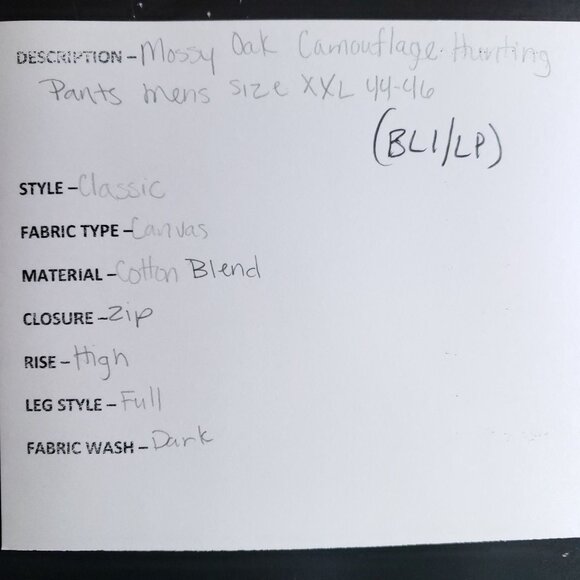 DESCRIPTION - Mossy Oak Camouflage Hunting
Pants mens size XXL 44-46
(BL1/LP)
STYLE - Classic
FABRIC TYPE - Canvas
MATERIAL - Cotton Blend
CLOSURE - Zip
RISE - High
LEG STYLE - Full
FABRIC WASH - Dark